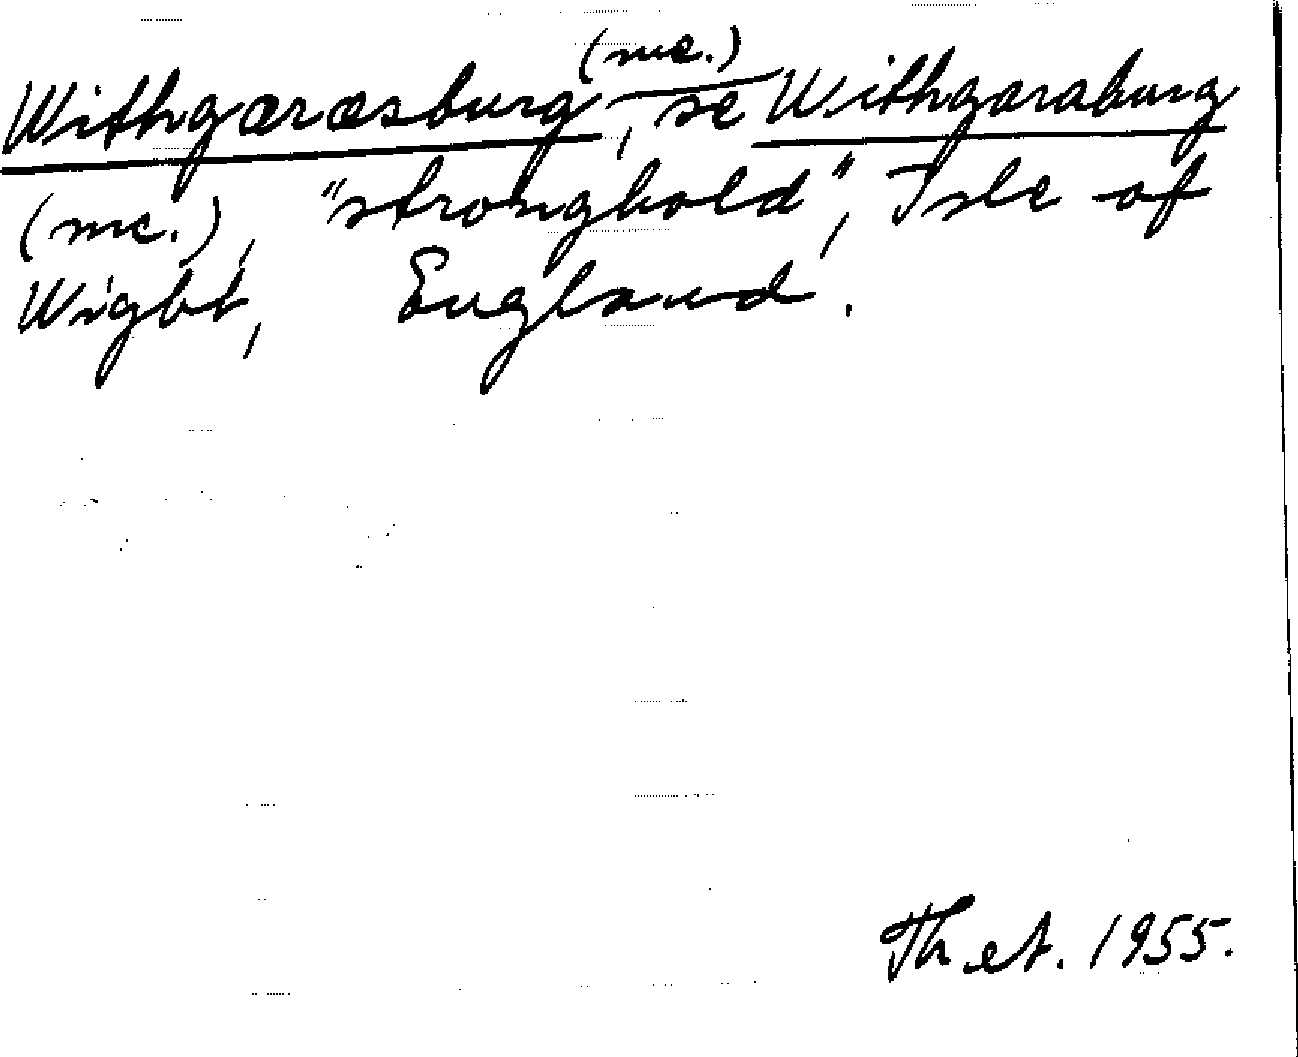 (me.)
Withgarasburg, se Withgaraburg
(me.), "stronghold", Isle of
Wight, England.
Th.et. 1955.